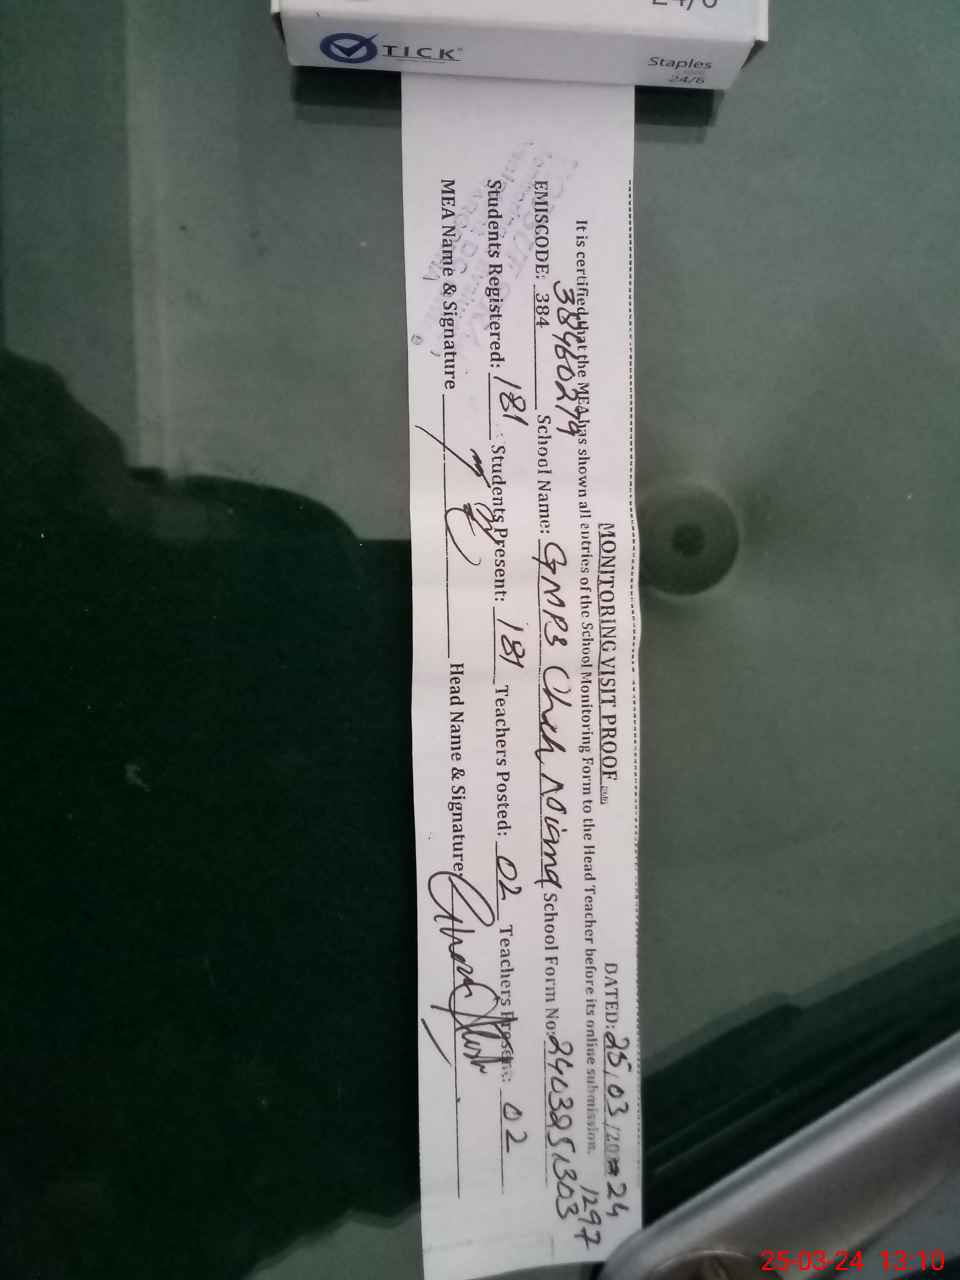 24/6
TICK
Staples
24/6
MONITORING VISIT PROOF DATED: 25/03/2024
It is certified that the MEA has shown all entries of the School Monitoring Form to the Head Teacher before its online submission.
38460279 1297
EMISCODE: 384 School Name: GMPS Chah School Form No: 2403251303
Students Registered: 181 Students Present: 181 Teachers Posted: 02 Teachers Present: 02
MEA Name & Signature Head Name & Signature
25-03-24 13:10